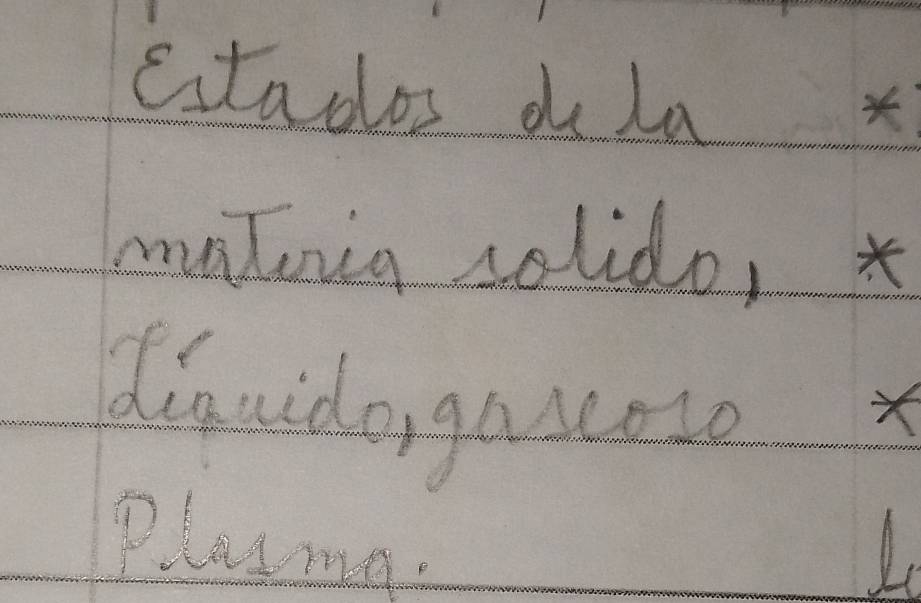 Estados de la *
materia solido, *
Líquido, gaseoso *
Plasma.